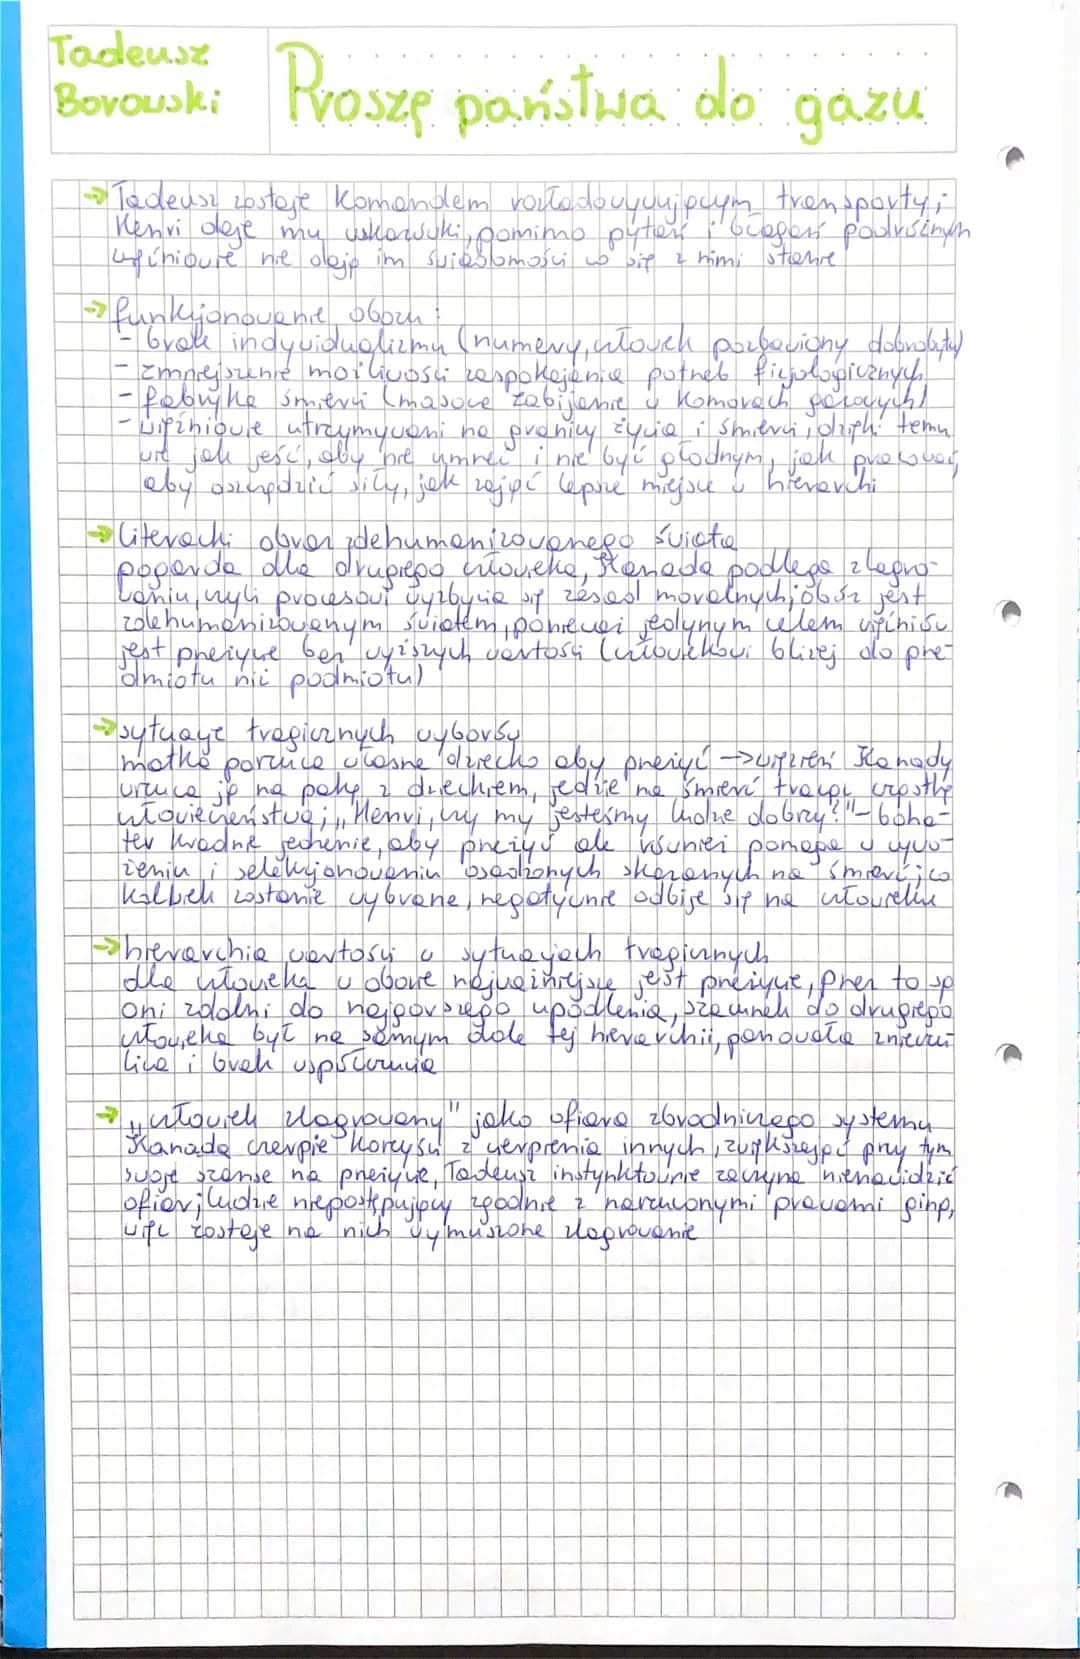 Tadeusz
Borowski
Proszę państwa do gazu
→ Tadeusz zostaje Komandem rozładowywującym transporty;
Henri daje mu wskazówki, pomimo pytań i błagań podróżnych
więźniowie nie dają im świadomości co się z nimi stanie
→ funkcjonowanie obozu:
- brak indywidualizmu (numery, człowiek pozbawiony dobrobytu)
- zmniejszenie możliwości zaspokojenia potrzeb fizjologicznych
- fabryka śmierci (masowe zabijanie w komorach gazowych)
- więźniowie utrzymywani na granicy życia i śmierci, dzięki temu
wie jak jeść, aby nie umrzeć i nie być głodnym, jak pracować
aby oszczędzić siły, jak zająć lepsze miejsce w hierarchi
→ literacki obraz zdehumanizowanego świata
pogarda dla drugiego człowieka, Kanada podlega zlagro-
waniu, czyli procesowi wyzbycia się zasad moralnych; obóz jest
zdehumanizowanym światem, ponieważ jedynym celem więźniów
jest przeżycie bez wyższych wartości (człowiekowi bliżej do prze-
dmiotu niż podmiotu)
→ sytuacje tragicznych wyborów
matka porzuca własne dziecko aby przeżyć → więzień Kanady
wrzuca ją na pakę z dzieckiem, jedzie na śmierć tracąc cząstkę
człowieczeństwa; "Henri, czy my jesteśmy ludzie dobrzy?" - boha-
ter kradnie jedzenie, aby przeżyć ale również pomaga w wywo-
żeniu i selekcjonowaniu osadzonych skazanych na śmierć; co
kolwiek zostanie wybrane, negatywnie odbije się na człowieku
→ hierarchia wartości w sytuacjach tragicznych
dla człowieka w obozie najważniejsze jest przeżycie, przez to są
oni zdolni do najgorszego upodlenia, szacunek do drugiego
człowieka był na samym dole tej hierarchii, panowała znieczu-
lica i brak współczucia
→ "człowiek zlagrowany" jako ofiara zbrodniczego systemu
Kanada czerpie korzyści z cierpienia innych, zwiększając przy tym
swoje szanse na przeżycie, Tadeusz instynktownie zaczyna nienawidzić
ofiar; ludzie niepostępujący zgodnie z narzuconymi prawami giną,
więc zostaje na nich wymuszone zlagrowanie